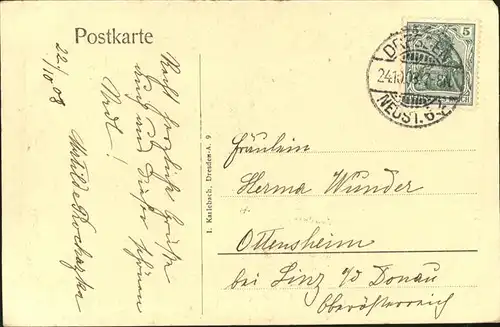 Postkarte
22/10 08
Recht herzliche Grüße
auch aus dieser schönen
Stadt!
Mathilde Prochazka
I. Karlebach, Dresden-A. 9
5
DRESDEN
24.10.08. 7-8N.
NEUST. 6
Fräulein
Herma Wunder
Ottensheim
bei Linz a/d Donau
Oberösterreich